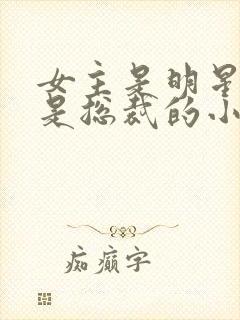 女主是明星
是总裁的小
痴癫字